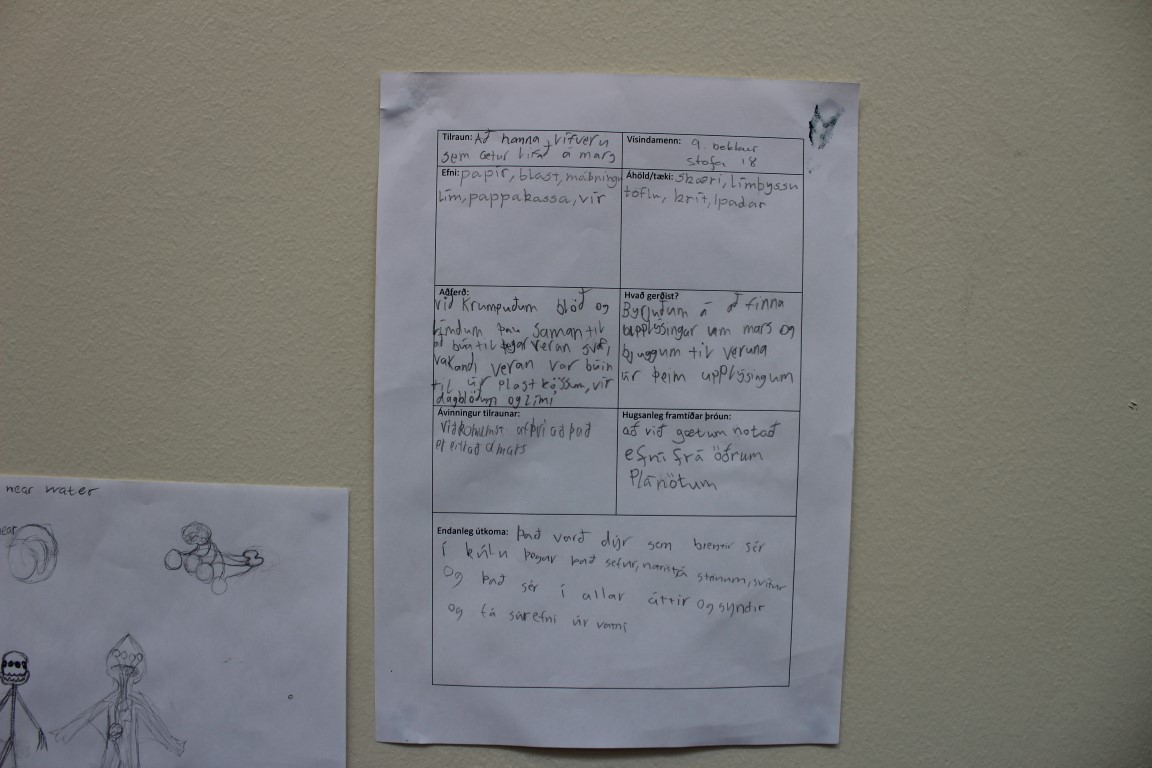 Tilraun: Að hanna lífveru
sem getur lifað á mars
Vísindamenn: 9. bekkur
stofa 18
Efni: papír, blast, málningu
lím, pappakassa, vír
Áhöld/tæki: skæri, límbyssu
töflu, krít, Ipadar
Aðferð:
við krumpuðum blöð og
límdum þau saman til
að búa til þegar veran svaf,
vakandi veran var búin
til úr plastkössum, vír
dagblöðum og lími
Hvað gerðist?
Byrjuðum á að finna
upplýsingar um mars og
bjuggum til veruna
úr þeim upplýsingum
Ávinningur tilraunar:
við komumst af því að það
er eitrað á mars
Hugsanleg framtíðar þróun:
að við gætum notað
efni frá öðrum
Plánötum
Endanleg útkoma: það varð dýr sem breytir sér
í kúlu þegar það sefur, nærist á steinum, svífur
Og það sér í allar áttir og syndir
og fá súrefni úr vatni
near water
near